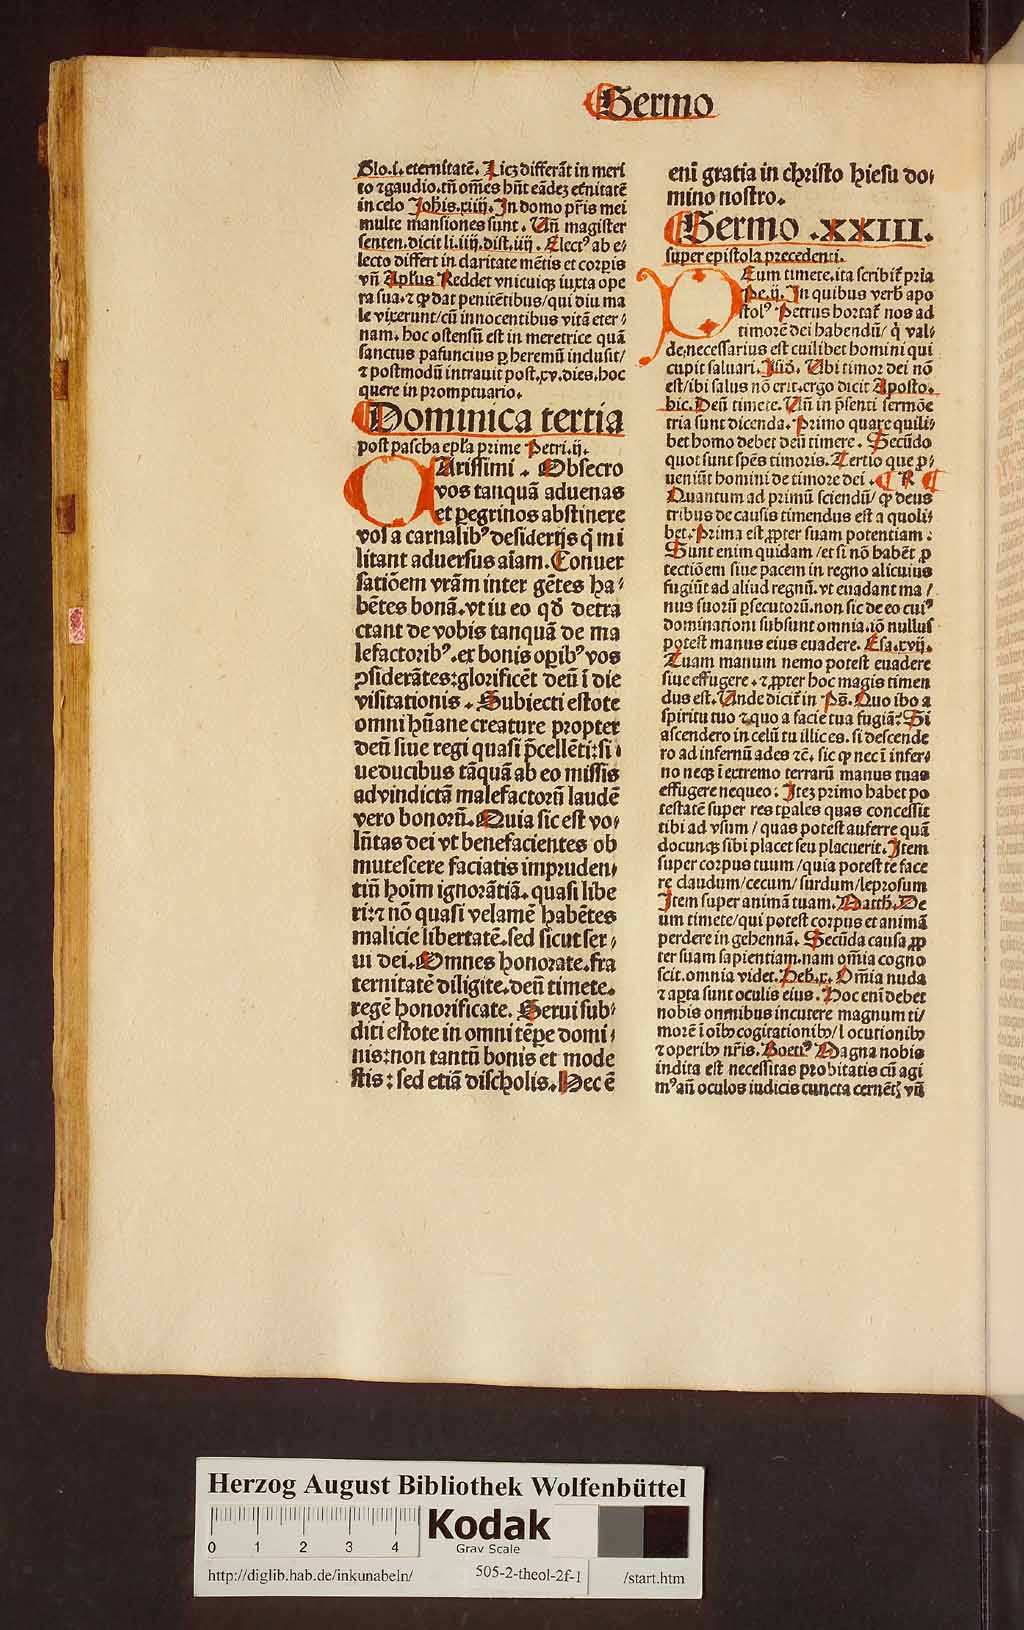 Sermo
Glo.i. eternitatē. Licꝫ differāt in meri
to ⁊ gaudio. tn̄ om̄es hn̄t eādeꝫ et̄nitatē
in celo Joh̄is.xiiij. In domo pr̄is mei
multe mansiones sunt. Vn̄ magister
senten. dicit li.iiij.dist.iiij. Elect⁹ ab e⸗
lecto differt in claritate mētis et corpis
vn̄ Apl̄us Reddet vnicuiqꝫ iuxta ope
ra sua. ⁊ ꝙ dat penitētibus/ qui diu ma
le vixerunt/ cū innocentibus vitā eter⸗
nam. hoc ostensū est in meretrice quā
sanctus pafuncius ꝑ heremū inclusit/
⁊ postmodū intrauit post.xv.dies. hoc
quere in promptuario.
Dominica tertia
post pascha ep̄la prime Petri.ij.
CArissimi. Obsecro
vos tanquā aduenas
et ꝑegrinos abstinere
vos a carnalib⁹ desiderijs q̄ mi
litant aduersus aīam. Conuer
satiōem vrām inter gētes ha⸗
bētes bonā. vt iu eo qđ detra
ctant de vobis tanquā de ma
lefactorib⁹. ex bonis oꝑib⁹ vos
ꝯsiderātes: glorificēt deū ī die
visitationis. Subiecti estote
omni hūane creature propter
deū siue regi quasi p̄cellēti: si⸗
ue ducibus tāquā ab eo missis
ad vindictā malefactorū laudē
vero bonorū. Quia sic est vo⸗
lūtas dei vt benefacientes ob
mutescere faciatis impruden⸗
tiū hoīm ignorātiā. quasi libe
ri: ⁊ nō quasi velamē habētes
malicie libertatē. sed sicut ser⸗
ui dei. Omnes honorate. fra
ternitatē diligite. deū timete.
regē honorificate. Serui sub⸗
diti estote in omni tēꝑe domi⸗
nis: non tantū bonis et mode
stis: sed etiā discholis. Hec ē
enī gratia in christo hiesu do⸗
mino nostro.
Sermo .XXIII.
super epistola precedenti.
DEum timete. ita scribit᷑ pria
Pe.ij. In quibus verb̄ apo
stol⁹ Petrus hortat᷑ nos ad
timorē dei habendū/ q̄ val⸗
de necessarius est cuilibet homini qui
cupit saluari. Ysid̄. Vbi timor dei nō
est/ ibi salus nō erit. ergo dicit Aposto.
hic. Deū timete. Vn̄ in p̄senti sermōe
tria sunt dicenda. Primo quare quili⸗
bet homo debet deū timere. Secūdo
quot sunt spēs timoris. Tertio que ꝓ⸗
ueniūt homini de timore dei.
Quantum ad primū sciendū/ ꝙ deus
tribus de causis timendus est a quoli⸗
bet. Prima est ꝓpter suam potentiam:
Sunt enim quidam/ et si nō habēt ꝓ
tectiōem siue pacem in regno alicuius
fugiūt ad aliud regnū. vt euadant ma/
nus suorū ꝑsecutorū. non sic de eo cui⁹
dominationi subsunt omnia. iō nullus
potest manus eius euadere. Esa.xvij.
Tuam manum nemo potest euadere
siue effugere. ⁊ ꝓpter hoc magis timen
dus est. Vnde dicit᷑ in Ps̄. Quo ibo a
spiritu tuo ⁊ quo a facie tua fugiā? Si
ascendero in celū tu illic es. si descende
ro ad infernū ades ⁊c̄. sic ꝙ nec ī infer⸗
no neqꝫ ī extremo terrarū manus tuas
effugere nequeo: Iteꝫ primo habet po
testatē super res tp̄ales quas concessit
tibi ad vsum/ quas potest auferre quā
docunqꝫ sibi placet seu placuerit. Item
super corpus tuum/ quia potest te face
re claudum/ cecum/ surdum/ leprosum
Item super animā tuam. Matth. De
um timete/ qui potest corpus et animā
perdere in gehennā. Secūda causa ꝓp
ter suam sapientiam. nam om̄ia cogno
scit. omnia videt. Heb.x. Om̄ia nuda
⁊ aꝑta sunt oculis eius. Hoc enī debet
nobis omnibus incutere magnum ti/
morē ī oīb⁹ cogitationib⁹/ locutionib⁹
⁊ operib⁹ nr̄is. Boeti⁹ Magna nobis
indita est necessitas probitatis cū agi
m⁹ an̄ oculos iudicis cuncta cernētꝭ vn̄
Herzog August Bibliothek Wolfenbüttel
0 1 2 3 4
Kodak
Gray Scale
http://diglib.hab.de/inkunabeln/ 505-2-theol-2f-1 /start.htm